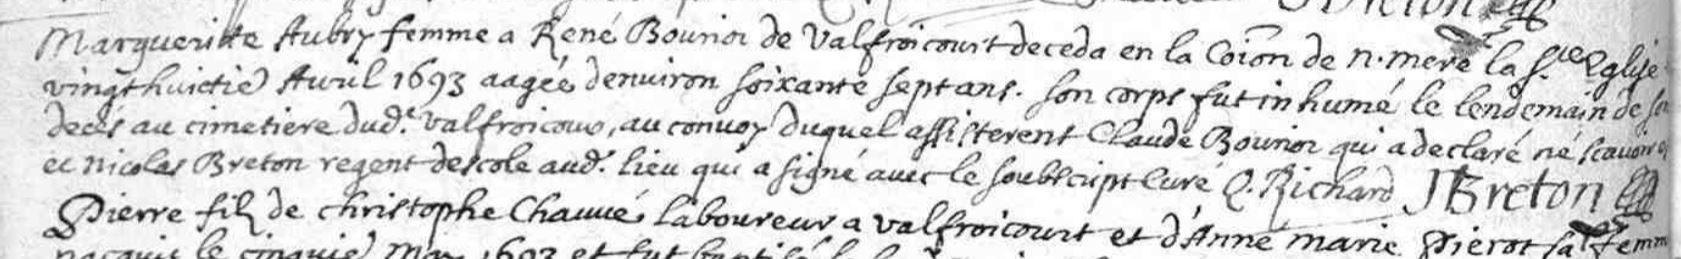 Breton
Margueritte Aubry femme a René Bourion de Valfroicourt deceda en la Coion de n. mere la Ste Eglise
vingthuictie Avril 1693 aagée denviron soixante sept ans. son corps fut inhumé le lendemain de son
deces au cimetiere dud.t valfroicour, au convoy duquel assisterent Claude Bourion qui a declaré né scavoir
et Nicolas Breton regent descole aud. lieu qui a signé avec le soubscript Curé Q. Richard J Breton
Pierre fil de christophe Chauué laboureur a valfroicourt et d'Anne marie Pierot sa femm
nacquit le cinquie May 1693 et fut baptisé le